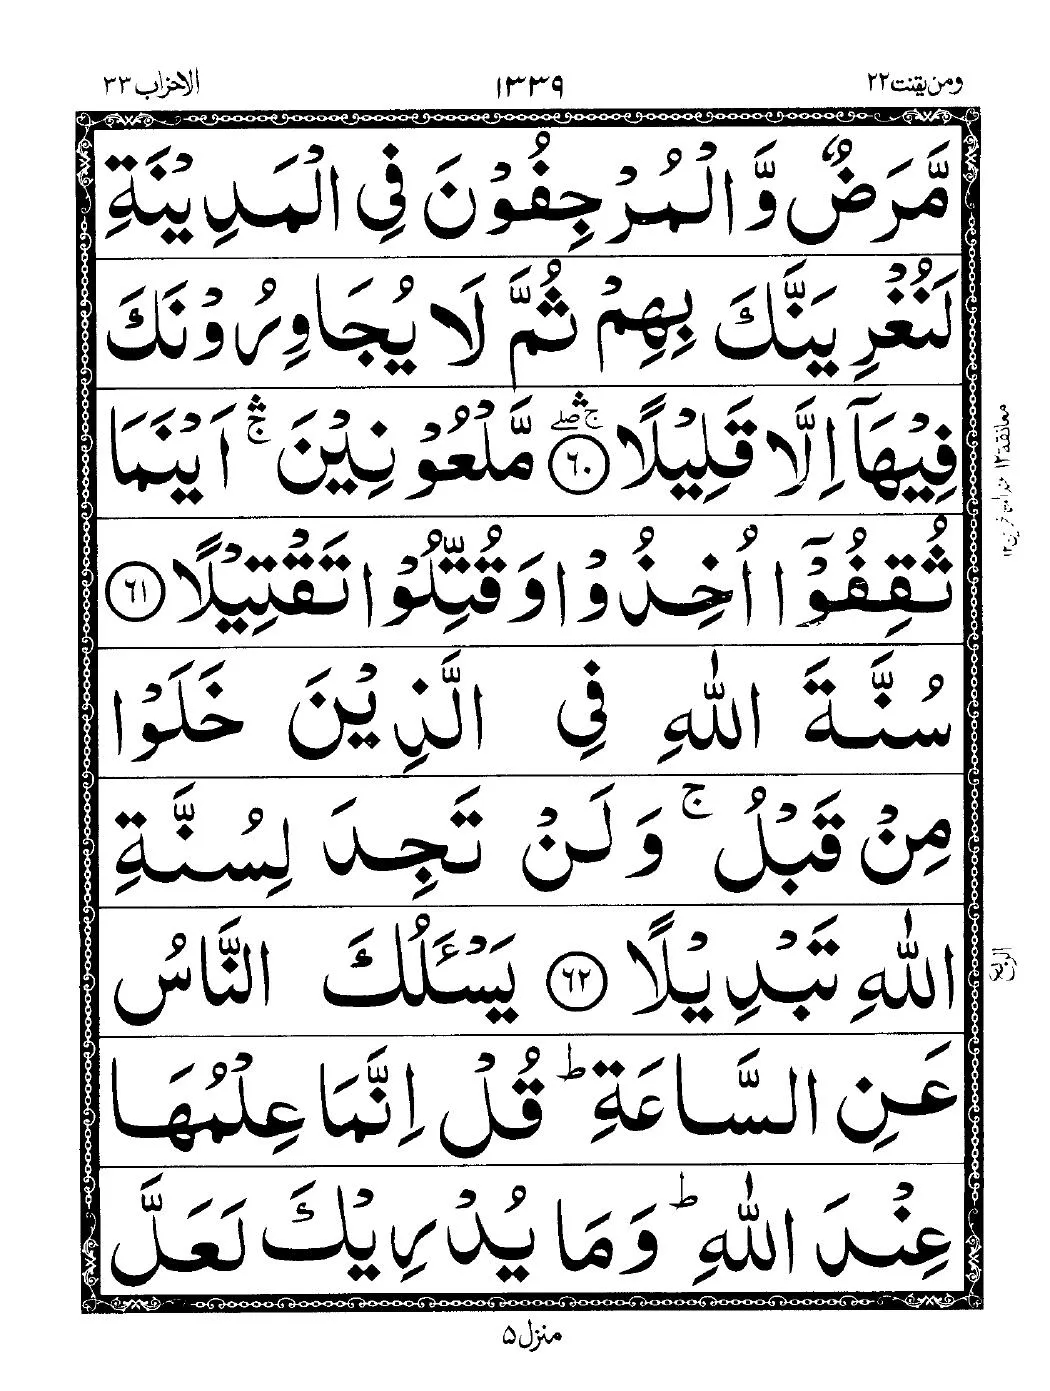 ومن یقنت ۲۲
۱۳۳۹
الاحزاب ۳۳
مَّرَضٌ وَّالْمُرْجِفُوْنَ فِي الْمَدِيْنَةِ
لَنُغْرِيَنَّكَ بِهِمْ ثُمَّ لَا يُجَاوِرُوْنَكَ
فِيْهَآ اِلَّا قَلِيْلًا ۶۰ ۚۛ مَّلْعُوْنِيْنَ ۚۛ اَيْنَمَا
ثُقِفُوْٓا اُخِذُوْا وَقُتِّلُوْا تَقْتِيْلًا ۶۱
سُنَّةَ اللّٰهِ فِي الَّذِيْنَ خَلَوْا
مِنْ قَبْلُ ۚ وَلَنْ تَجِدَ لِسُنَّةِ
اللّٰهِ تَبْدِيْلًا ۶۲ يَسْـَٔلُكَ النَّاسُ
عَنِ السَّاعَةِ ؕ قُلْ اِنَّمَا عِلْمُهَا
عِنْدَ اللّٰهِ ؕ وَمَا يُدْرِيْكَ لَعَلَّ
معانقة ۱۲ عند المتاخرین ۱۲
الربع
منزل ۵